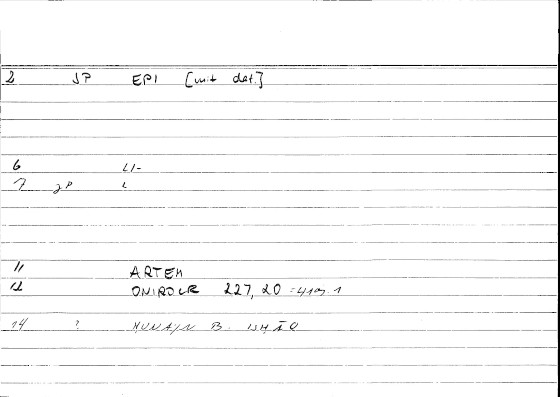 2 JP EPI [mit det.]
6 LI-
7 JP L
11 ARTEM
12 ONIROCR 227, 20
14 ? ḤUNAYN B. ISḤĀQ